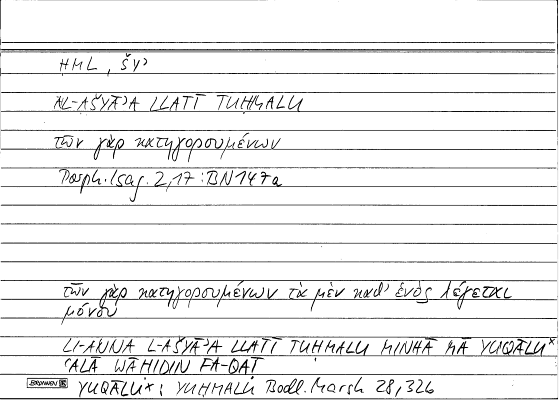 ḤML, ŠYʾ
AL-AŠYĀʾA LLATĪ TUḤMALU
τῶν γὰρ κατηγορουμένων
Porph. Isag. 2,17 : BN 147a
τῶν γὰρ κατηγορουμένων τὰ μὲν καθ' ἑνὸς λέγεται
μόνου
LI-ANNA L-AŠYĀʾA LLATĪ TUḤMALU MINHĀ MĀ YUQĀLU×
ʿALĀ WĀḤIDIN FA-QAṬ
BRUNNEN YUQĀLU×: YUḤMALU Bodl. Marsh 28,326